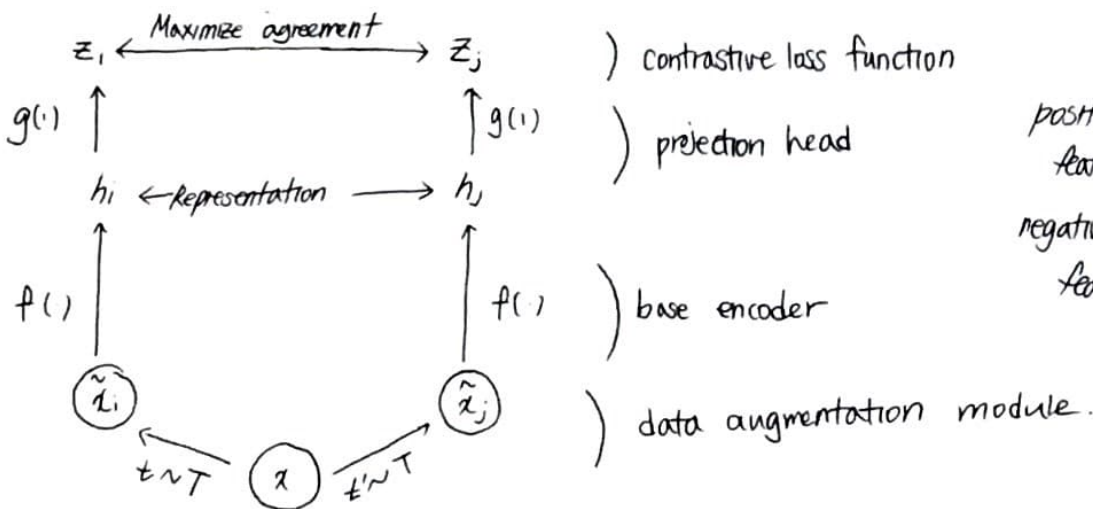 Maximize agreement
z_i ⟷ z_j
) contrastive loss function
g(·) ↑ ↑ g(·)
) projection head
h_i ← Representation → h_j
f(·) f(·)
) base encoder
x̃_i x̃_j
) data augmentation module.
t~T x t'~T